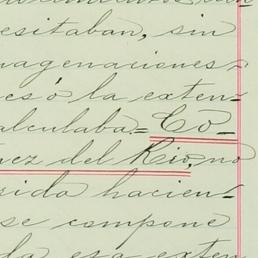 esitaban, sin
nagenaciones
es ó la exten=
alculaba= Co-
nez del Rio, no
rida hacien=
se compone
la esa exten